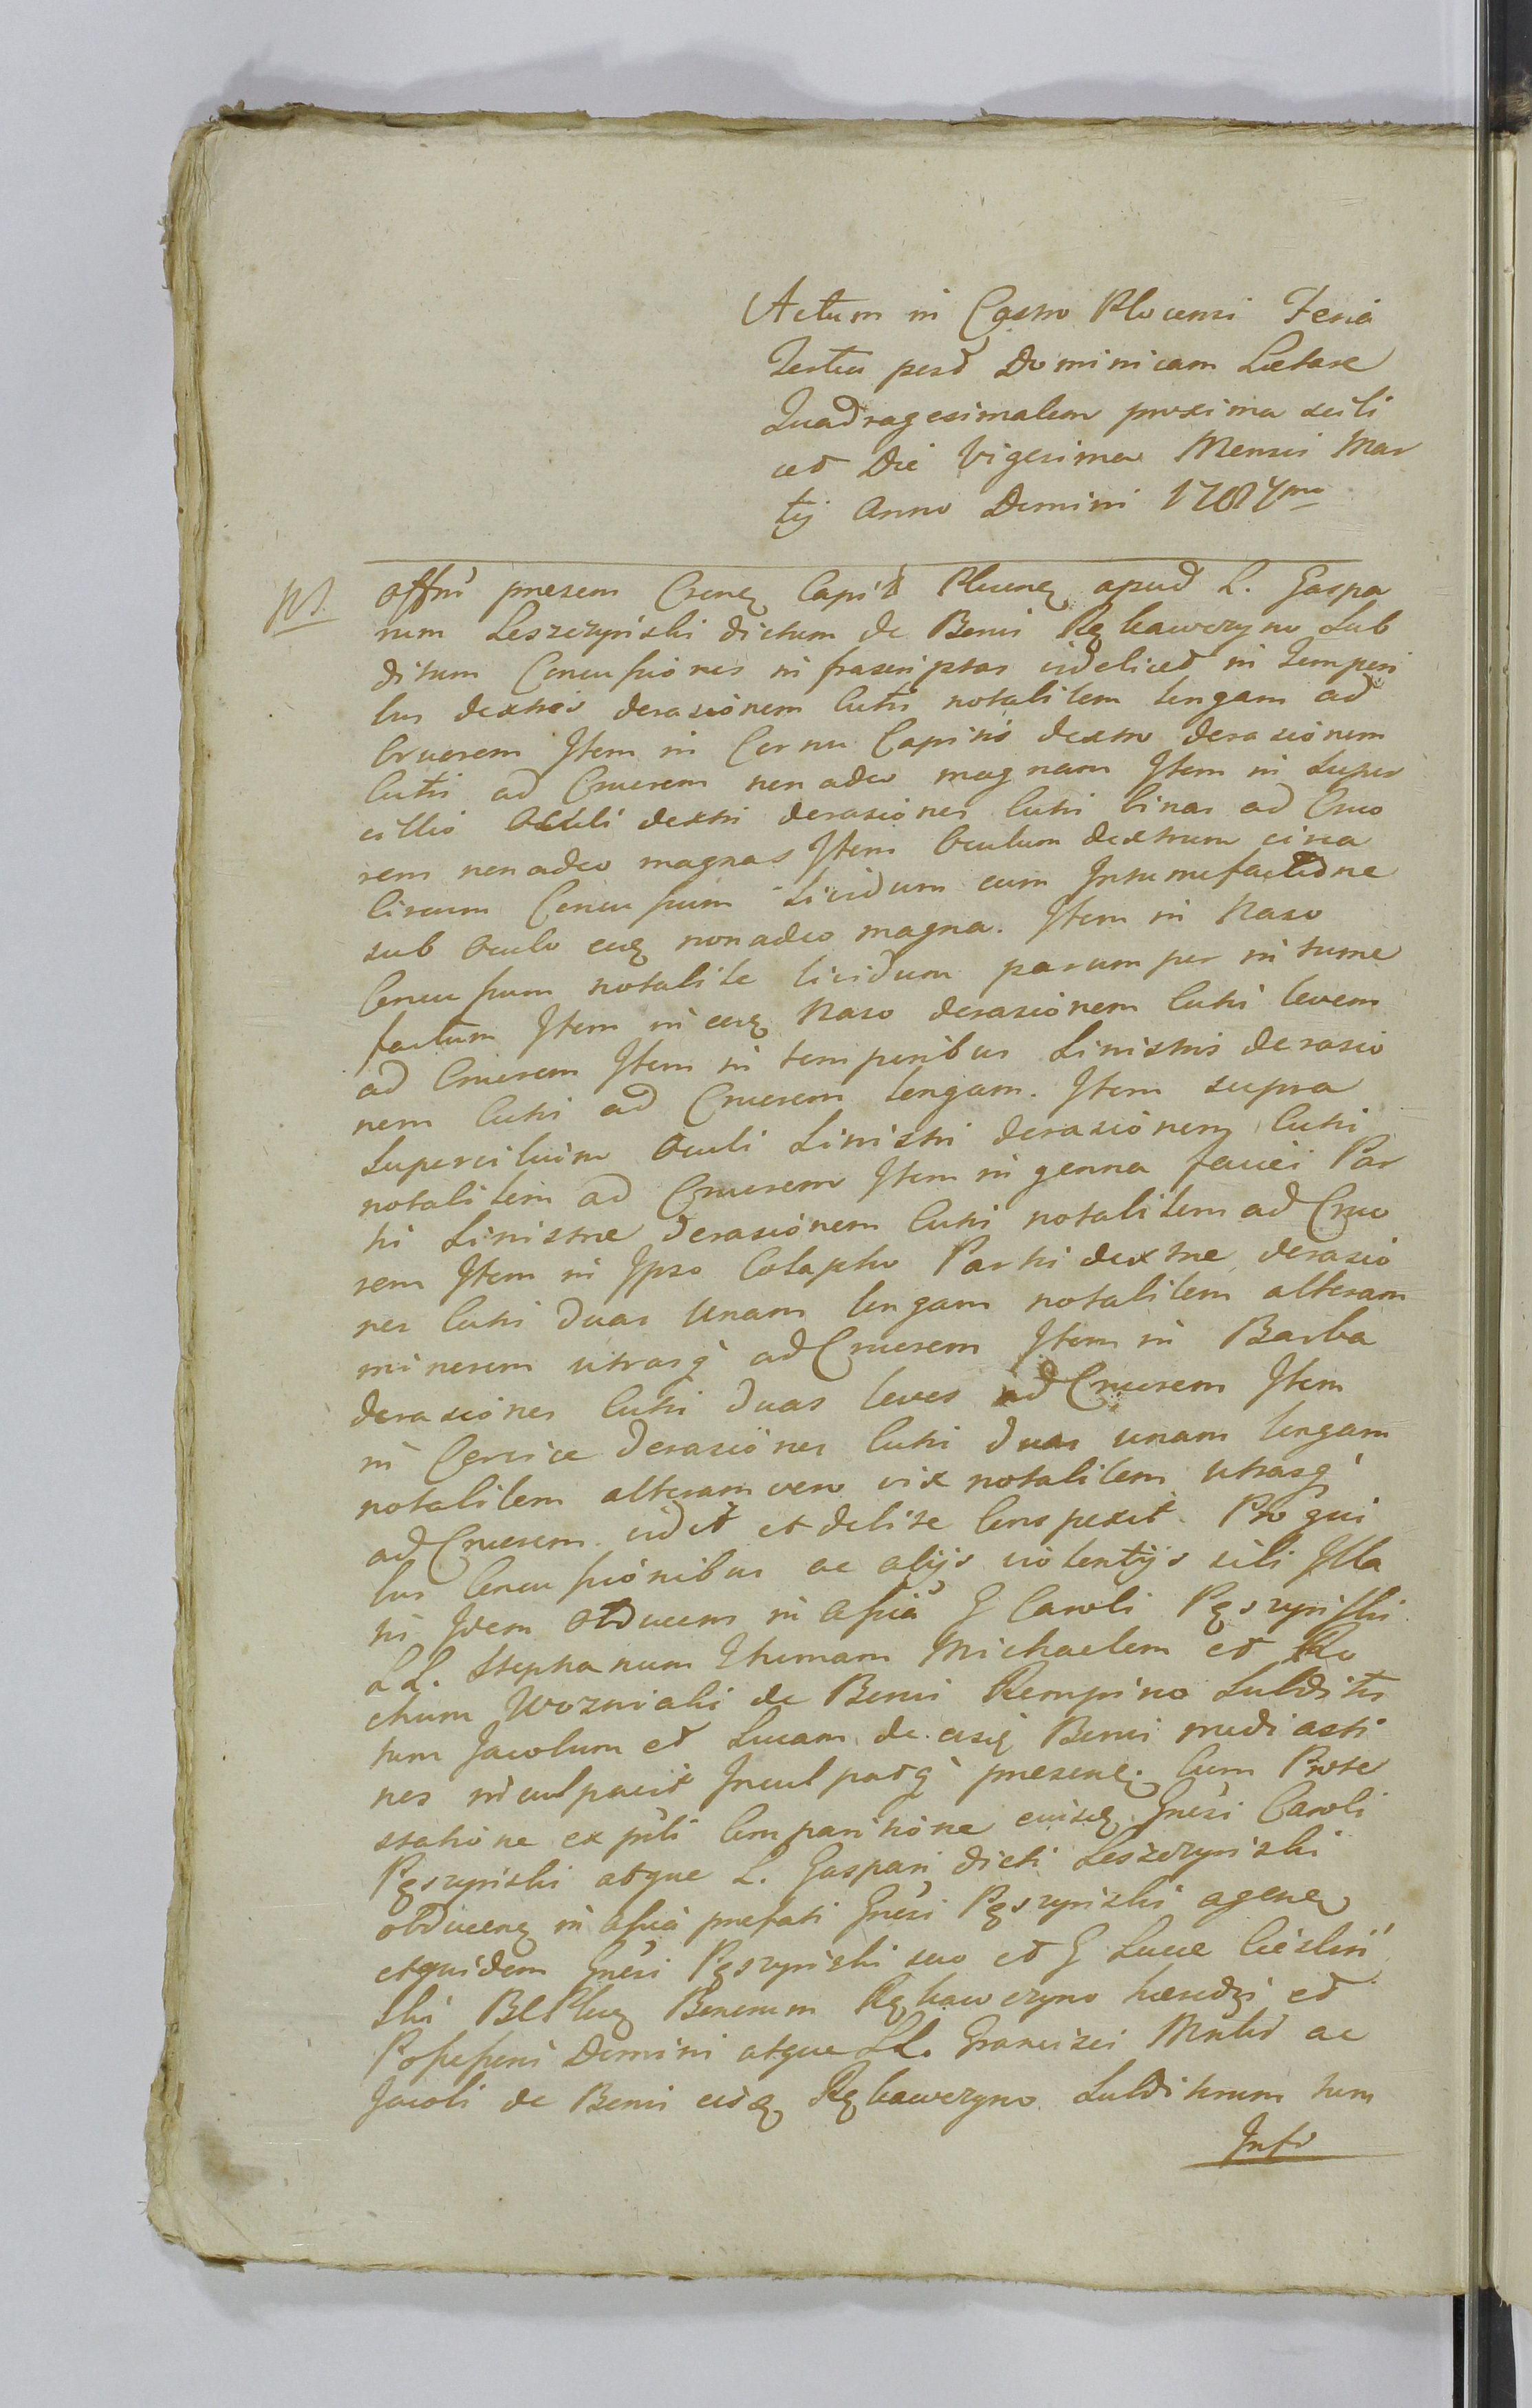 Actum in Castro Plocensi Feria
Tertia post Dominicam Lætare
Quadragesimalem proxima scili
cet Die Vigesima Mensis Mar
tij Anno Domini 1787mo
Offm presens Crense Capit Plocense apud L. Gaspa
rum Leszczynski dictum de Bonis Rębawczyno Sub
ditum Concussiones infrascriptas videlicet in Tempori
bus dextris derasionem Cutis notabilem longam ad
Cruorem Item in Cornu Capitis dextro derasionem
Cutis ad Cruorem non adeo magnam Item in Super
cilio Oculi dextri derasiones Cutis binas ad Cruo
rem non adeo magnas Item Oculum dextrum circa
circum Concussum Lividum cum Intumefactione
sub Oculo eoq nonadeo magna. Item in Naso
Concussum notabile lividum parumper intume
factum Item in eoq Naso derasionem Cutis levem
ad Cruorem Item in temporibus Sinistris derasio
nem Cutis ad Cruorem longam. Item supra
Supercilium Oculi Sinistri derasionem Cutis
notabilem ad Cruorem Item in genna faciei Par
tis Sinistræ derasionem Cutis notabilem ad Cruo
rem Item in Ipso Colapho Partis dextræ derasio
nes Cutis duas Unam longam notabilem alteram
minorem utrasq ad Cruorem Item in Barba
derasiones Cutis duas leves ad Cruorem Item
in Cervice derasiones Cutis duas unam longam
notabilem alteram vero vix notabilem utrasq
ad Cruorem vidit et debite Conspexit. Pro qui
bus Concussionibus ac alijs violentijs sibi Illa
tis Idem Obducens in Assia G Caroli Pęszynski
LL. Stephanum Thomam Michaelem et Ro
chum Wozniaki de Bonis Rempino Subditos
tum Jacobum et Lucam de eisq Bonis mediasti
nos inculpavit Inculpatq præsens. Cum Prote
statione ex psti Comparitione eiusq Gnesi Caroli
Pęszynski atque L. Gaspari dicti Leszczynski
obducens in Assia præfati Gnesi Pęszynski agens
etquidem Gnesi Pęszynski suo et G Lucæ Cieslin
ski BCPloc Bonorum Rębawczyno hæredis et
Possessoris Domini atque LL. Francisci Mulis ac
Jacobi de Bonis eisq Rębawczyno Subditorum tum